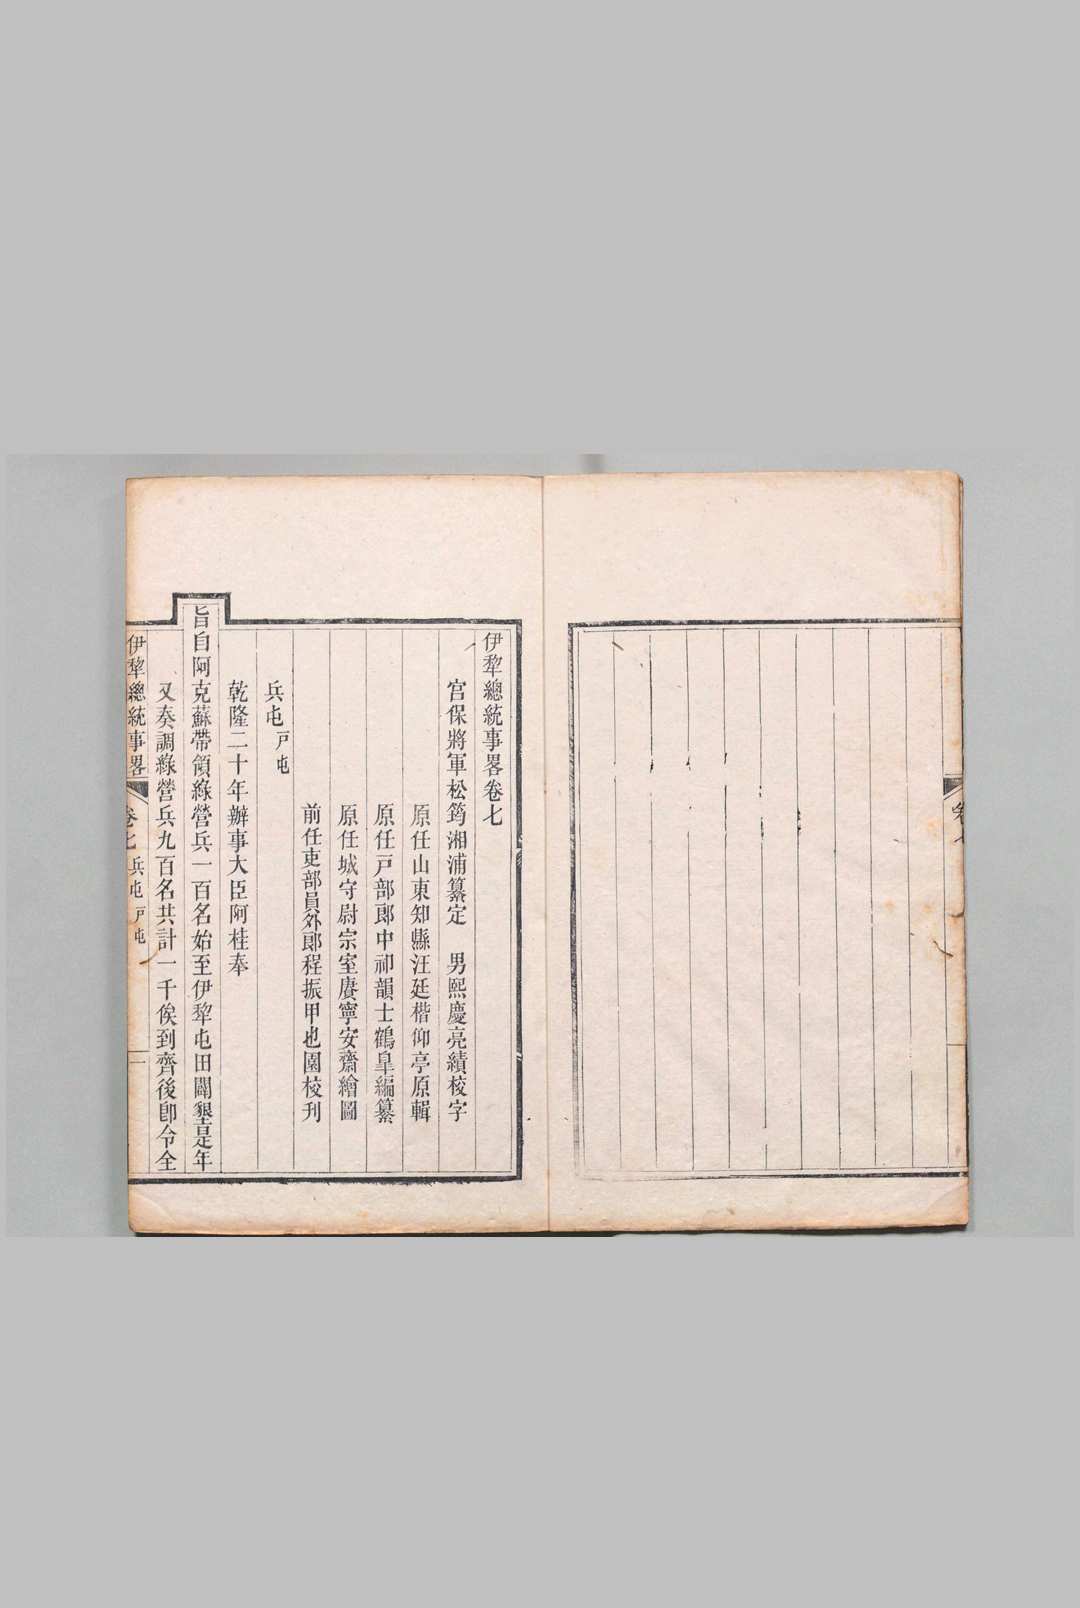 伊犂總統事畧卷七
宫保將軍松筠湘浦纂定　男熙慶亮績校字
原任山東知縣汪廷楷仰亭原輯
原任戸部郎中祁韻士鶴皐編纂
原任城守尉宗室賡寧安齋繪圖
前任吏部員外郎程振甲也園校刋
兵屯戸屯
乾隆二十年辦事大臣阿桂奉
旨自阿克蘇帶領綠營兵一百名始至伊犂屯田闢墾是年
又奏調綠營兵九百名共計一千俟到齊後卽令全
伊犂總統事畧　卷七　兵屯戸屯　一